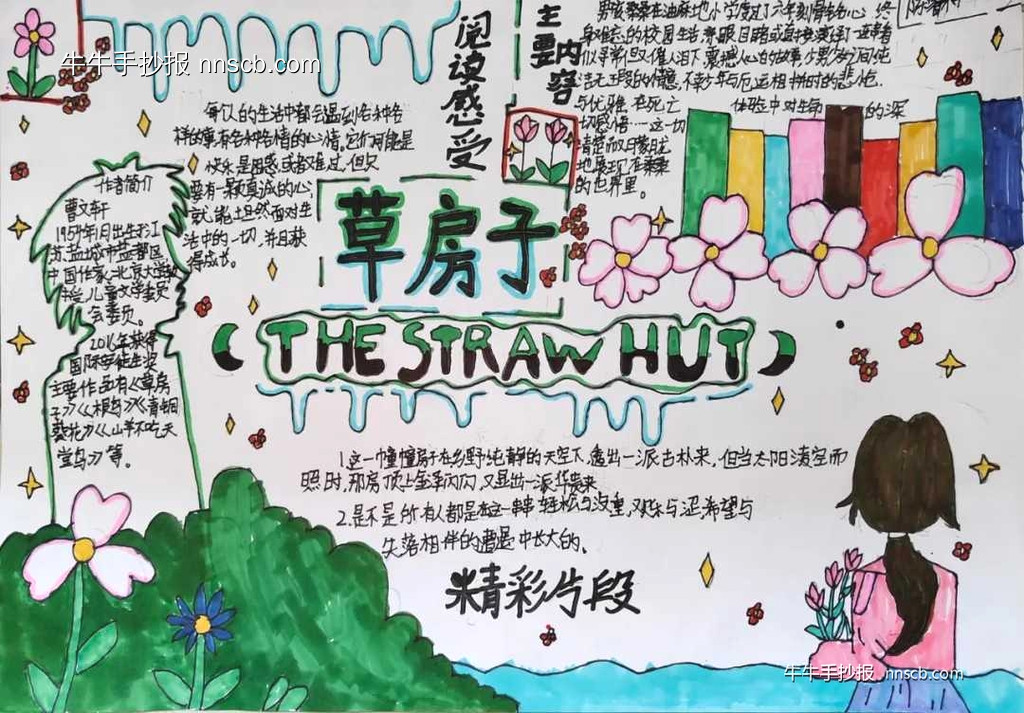 牛牛手抄报 nnscb.com
阅读感受
每个人的生活中都会遇到各种各
样的事有各种各样的心情。它们可能是
快乐是困惑或者难过,但只
要有一颗真诚的心,
就能坦然面对生
活中的一切,并且获
得成长。
主要内容
男孩桑桑在油麻地小学度过了六年刻骨铭心、终
身难忘的校园生活
似是寻常但又催人泪下、震撼人心的故事:少男少女之间纯
洁无
与优雅,在死亡体验中对生命的深
切感悟……这一切
清楚而又朦胧
地展现在桑桑
的世界里。
作者简介
曹文轩
1954年1月出生于江
苏盐城市盐都区
中国作家,北京大学教
儿童文学委员
会委员。
2016年获得
国际安徒生奖
主要作品有《草房
子》《根鸟》《青铜
葵花》《山羊不吃天
堂鸟》等。
草房子
(THE STRAW HUT)
1.这一幢幢房子在乡野纯静的天空下,透出一派古朴来,但当太阳凌空而
照时,那房顶上金泽闪闪,又显出一派华贵来
2.是不是所有人都是在这一串串轻松与沉重,欢乐与 希望与
失落相伴的 中长大的。
精彩片段
牛牛手抄报 nnscb.com